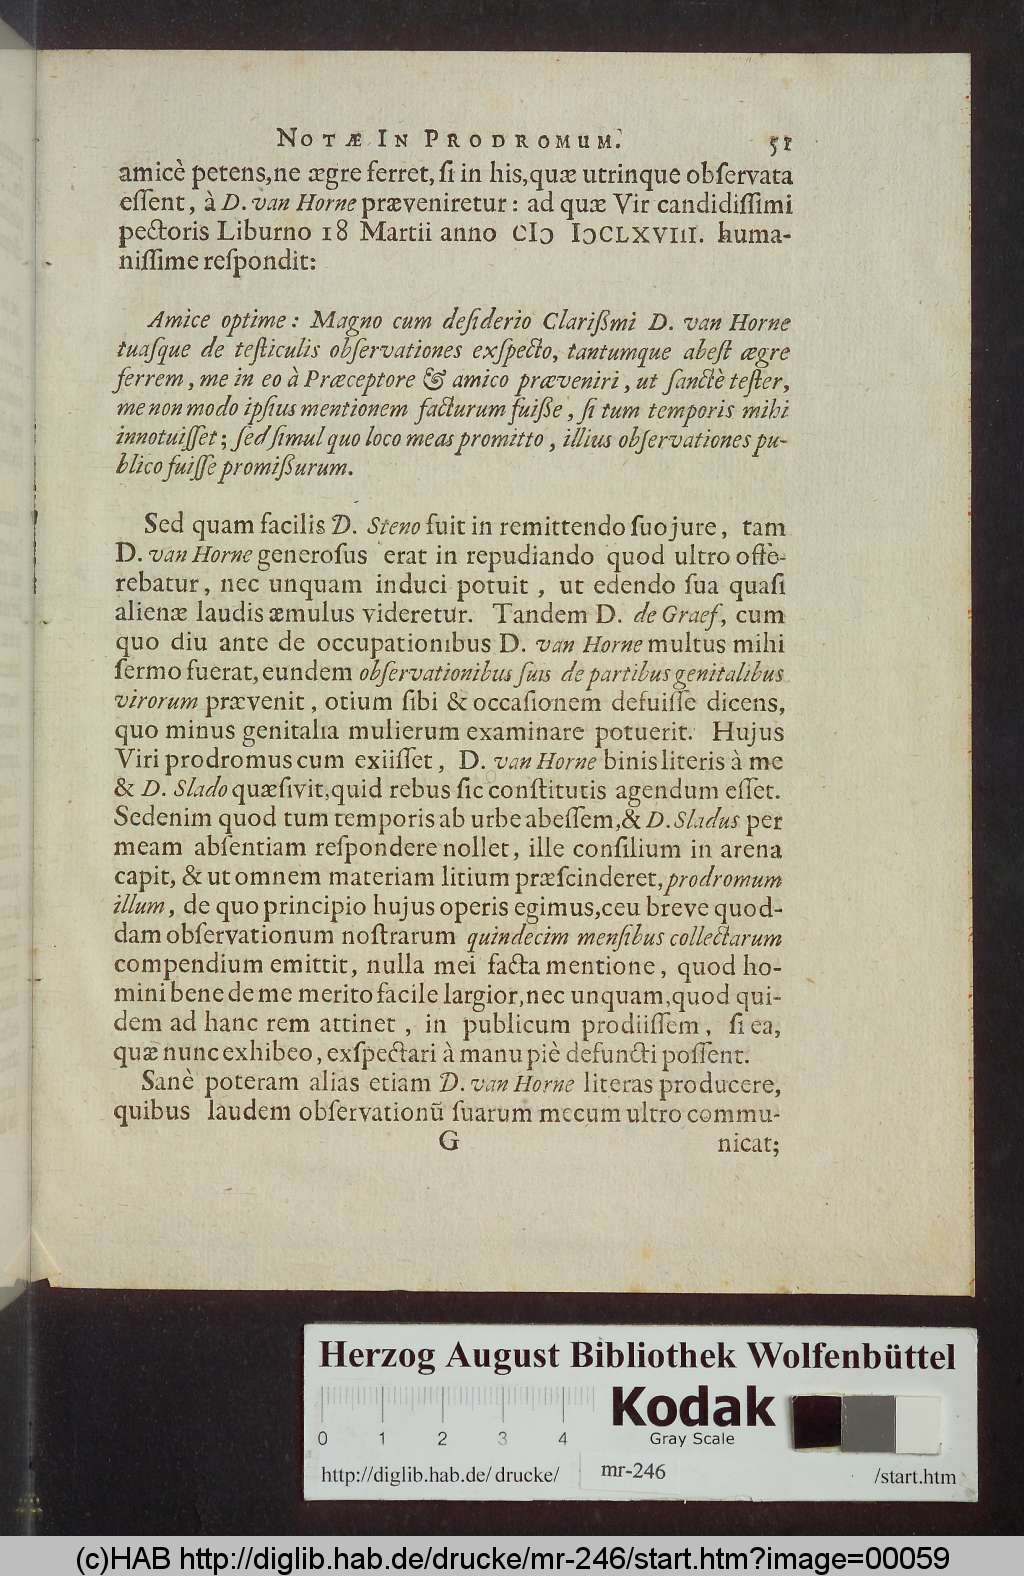 NOTÆ IN PRODROMUM. 51
amicè petens, ne ægre ferret, ſi in his, quæ utrinque obſervata
eſſent, à D. van Horne præveniretur: ad quæ Vir candidiſſimi
pectoris Liburno 18 Martii anno CIↃ IↃCLXVIII. huma-
niſſime reſpondit:
Amice optime: Magno cum deſiderio Clarißmi D. van Horne
tuaſque de teſticulis obſervationes exſpecto, tantumque abeſt ægre
ferrem, me in eo à Præceptore & amico præveniri, ut ſanctè teſter,
me non modo ipſius mentionem facturum fuiße, ſi tum temporis mihi
innotuiſſet; ſed ſimul quo loco meas promitto, illius obſervationes pu-
blico fuiſſe promißurum.
Sed quam facilis D. Steno fuit in remittendo ſuo jure, tam
D. van Horne generoſus erat in repudiando quod ultro offe-
rebatur, nec unquam induci potuit, ut edendo ſua quaſi
alienæ laudis æmulus videretur. Tandem D. de Graef, cum
quo diu ante de occupationibus D. van Horne multus mihi
ſermo fuerat, eundem obſervationibus ſuis de partibus genitalibus
virorum prævenit, otium ſibi & occaſionem defuiſſe dicens,
quo minus genitalia mulierum examinare potuerit. Hujus
Viri prodromus cum exiiſſet, D. van Horne binis literis à me
& D. Slado quæſivit, quid rebus ſic conſtitutis agendum eſſet.
Sed enim quod tum temporis ab urbe abeſſem, & D. Sladus per
meam abſentiam reſpondere nollet, ille conſilium in arena
capit, & ut omnem materiam litium præſcinderet, prodromum
illum, de quo principio hujus operis egimus, ceu breve quod-
dam obſervationum noſtrarum quindecim menſibus collectarum
compendium emittit, nulla mei facta mentione, quod ho-
mini bene de me merito facile largior, nec unquam, quod qui-
dem ad hanc rem attinet, in publicum prodiiſſem, ſi ea,
quæ nunc exhibeo, exſpectari à manu piè defuncti poſſent.
Sanè poteram alias etiam D. van Horne literas producere,
quibus laudem obſervationū ſuarum mecum ultro commu-
G nicat;
Herzog August Bibliothek Wolfenbüttel
Kodak
Gray Scale
0 1 2 3 4
http://diglib.hab.de/drucke/ mr-246 /start.htm
(c)HAB http://diglib.hab.de/drucke/mr-246/start.htm?image=00059